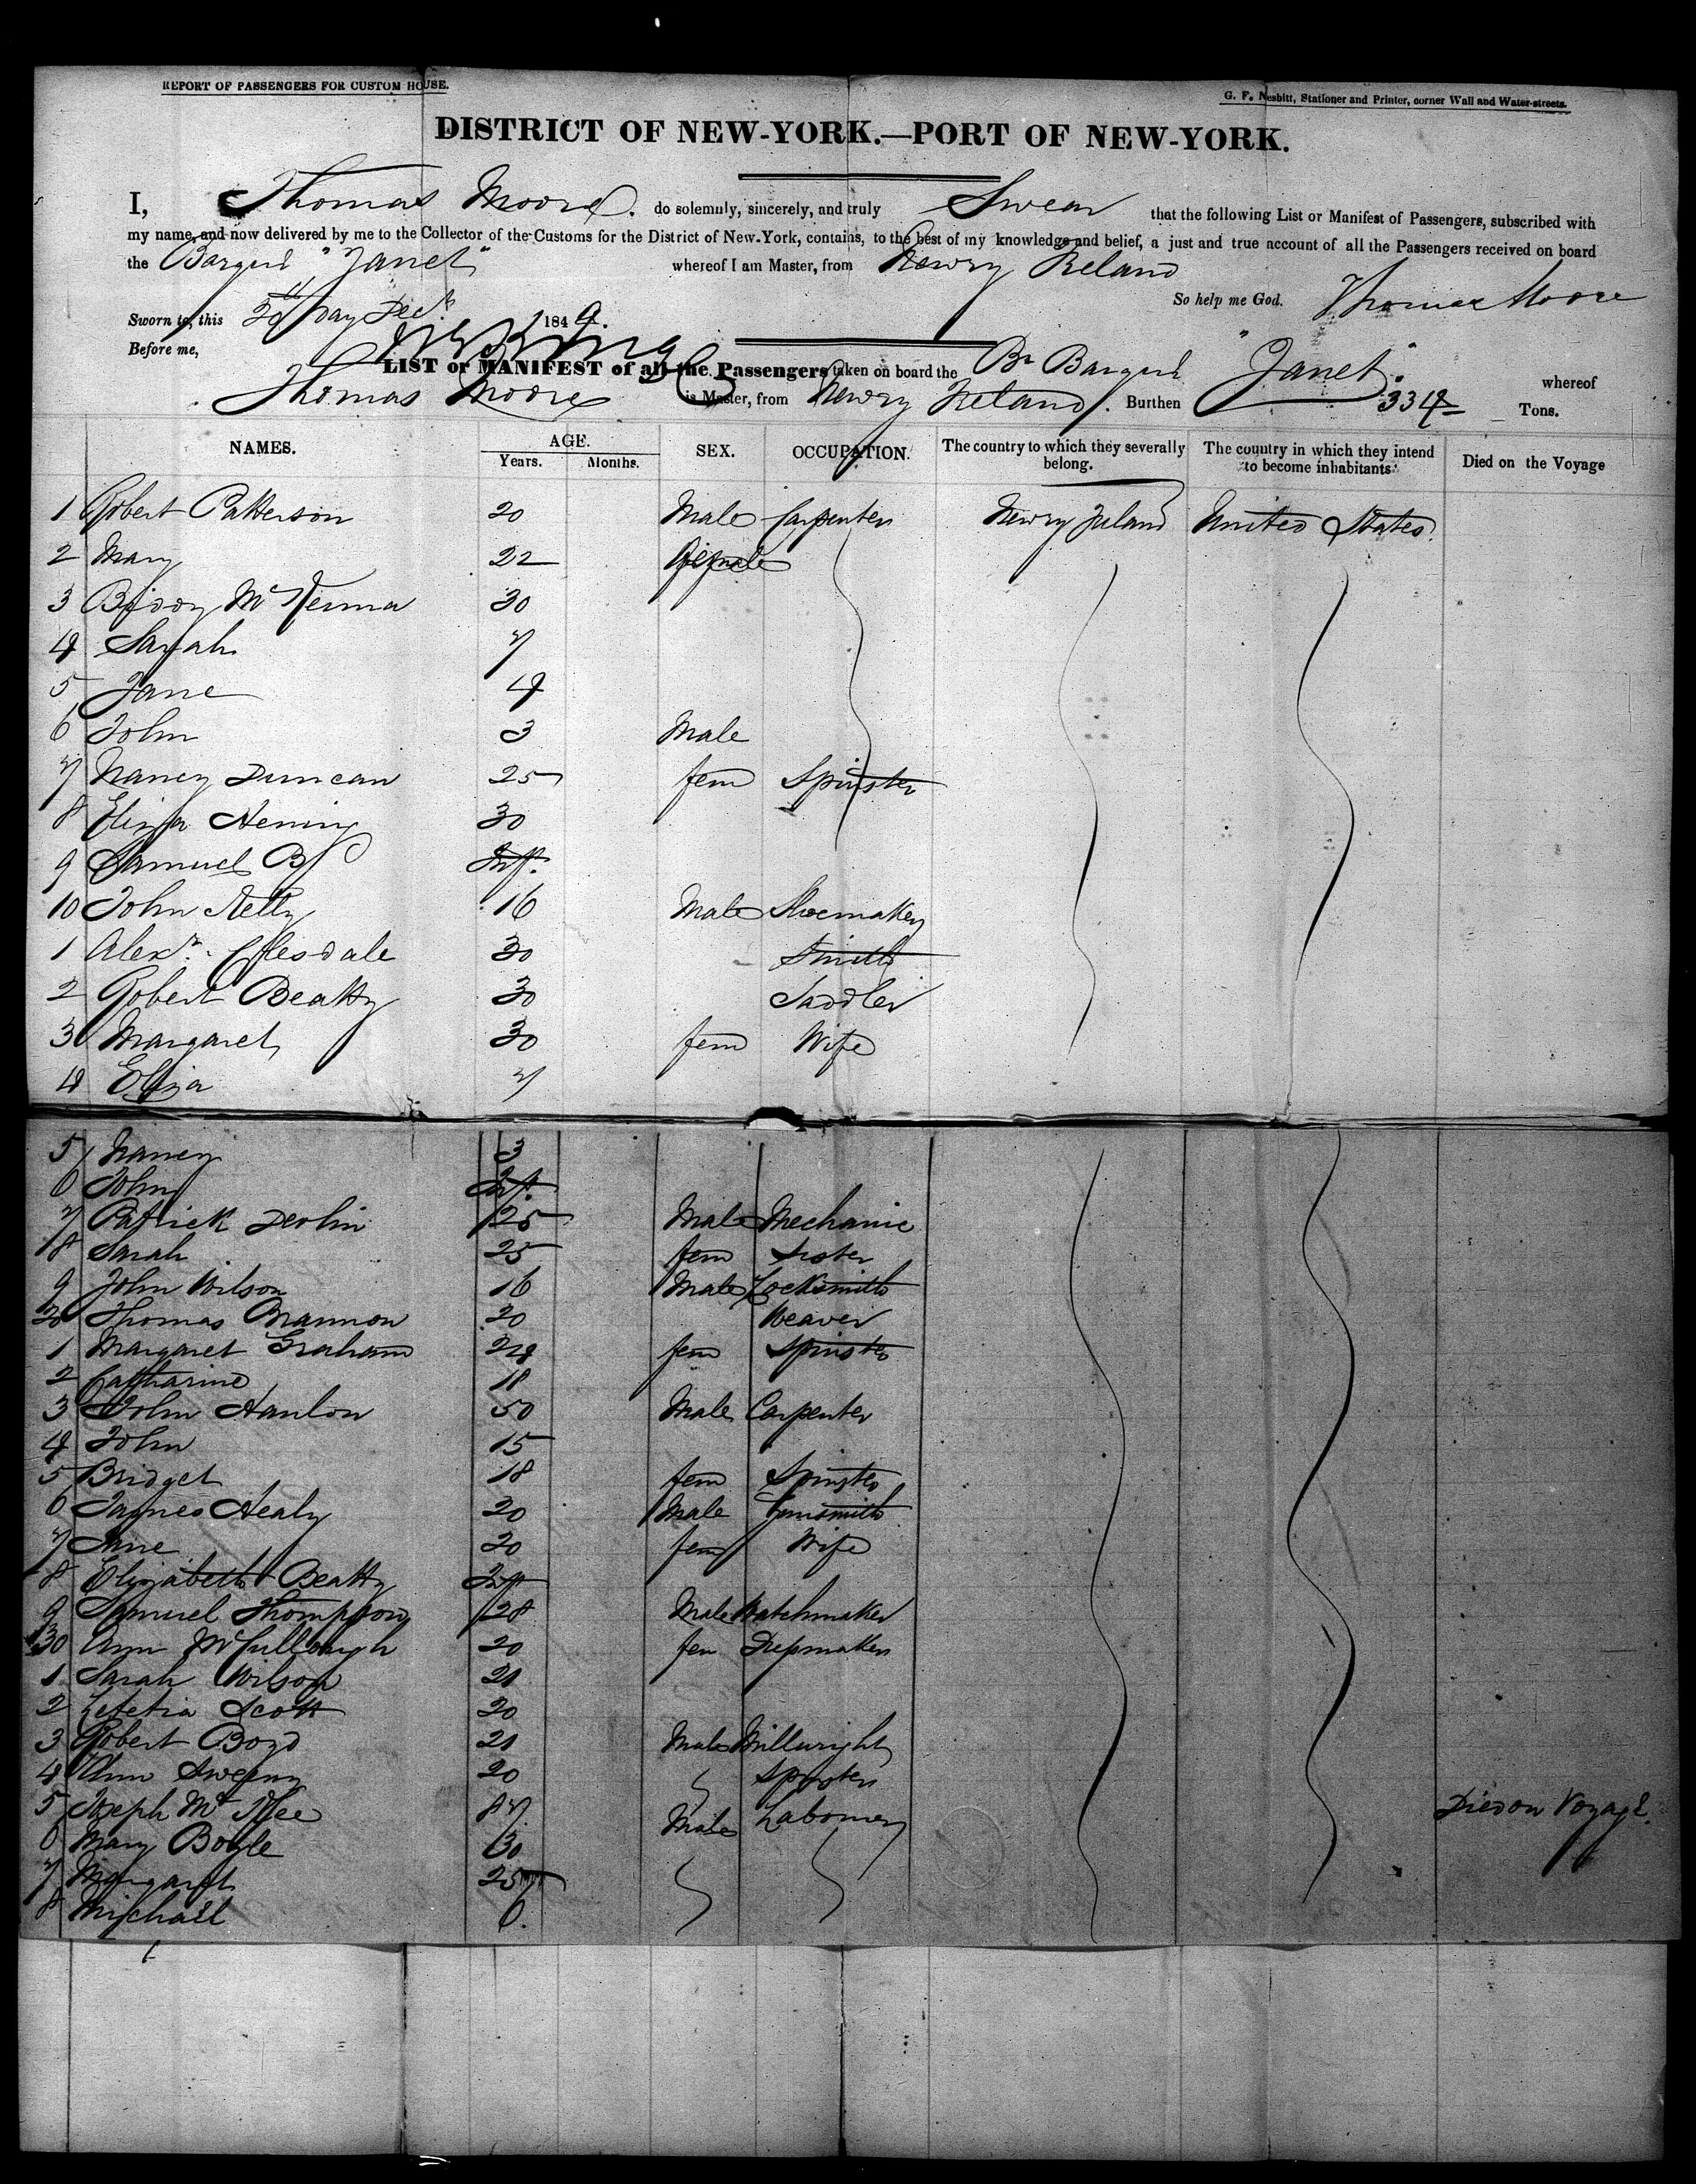 REPORT OF PASSENGERS FOR CUSTOM HOUSE.
G. F. Nesbitt, Stationer and Printer, corner Wall and Water-streets.
DISTRICT OF NEW-YORK.—PORT OF NEW-YORK.
I, Thomas Moore. do solemnly, sincerely, and truly Swear that the following List or Manifest of Passengers, subscribed with
my name, and now delivered by me to the Collector of the Customs for the District of New-York, contains, to the best of my knowledge and belief, a just and true account of all the Passengers received on board
the Barque "Janet" whereof I am Master, from Newry Ireland
So help me God. Thomas Moore
Sworn to, this Day Decr. 1849.
Before me,
LIST or MANIFEST of all the Passengers taken on board the Br Barque "Janet" whereof
Thomas Moore is Master, from Newry Ireland. Burthen 334 Tons.
NAMES. AGE. SEX. OCCUPATION. The country to which they severally belong. The country in which they intend to become inhabitants. Died on the Voyage
Years. Months.
1 Robert Patterson 20 Male Carpenter Newry Ireland United States.
2 Mary 22 Female
3 Biddy McKenna 30
4 Sarah 7
5 Jane 4
6 John 3 Male
7 Nancy Duncan 25 fem Spinster
8 Eliza Hening 30
9 Samuel B Inft.
10 John Nelly 16 Male Shoemaker
1 Alexr. 30 Smith
2 Robert Beatty 30 Saddler
3 Margaret 30 fem Wife
4 Eliza 7
5 Nancy 3
6 John Inft.
7 Patrick Devlin 25 Male Mechanic
8 Sarah 25 fem Sister
9 John Wilson 16 Male Locksmith
20 Thomas Brannon 20 Weaver
1 Margaret Graham 24 fem Spinster
2 Catharine 18
3 John Hanlon 50 Male Carpenter
4 John 15
5 Bridget 18 fem Spinster
6 James Healy 20 Male Gunsmith
7 Jane 20 fem Wife
8 Elizabeth Beatty Inft
9 Samuel Thompson 28 Male Watchmaker
30 Ann McCullough 20 fem Dressmaker
1 Sarah Wilson 21
2 Letetia Scott 20
3 Robert Boyd 21 Male Millwright
4 Ann Sweeny 20 Spinster
5 Joseph McKee 87 Male Labourer Died on Voyage.
6 Mary Boyle 30
7 Margaret 25
8 Michael 6.